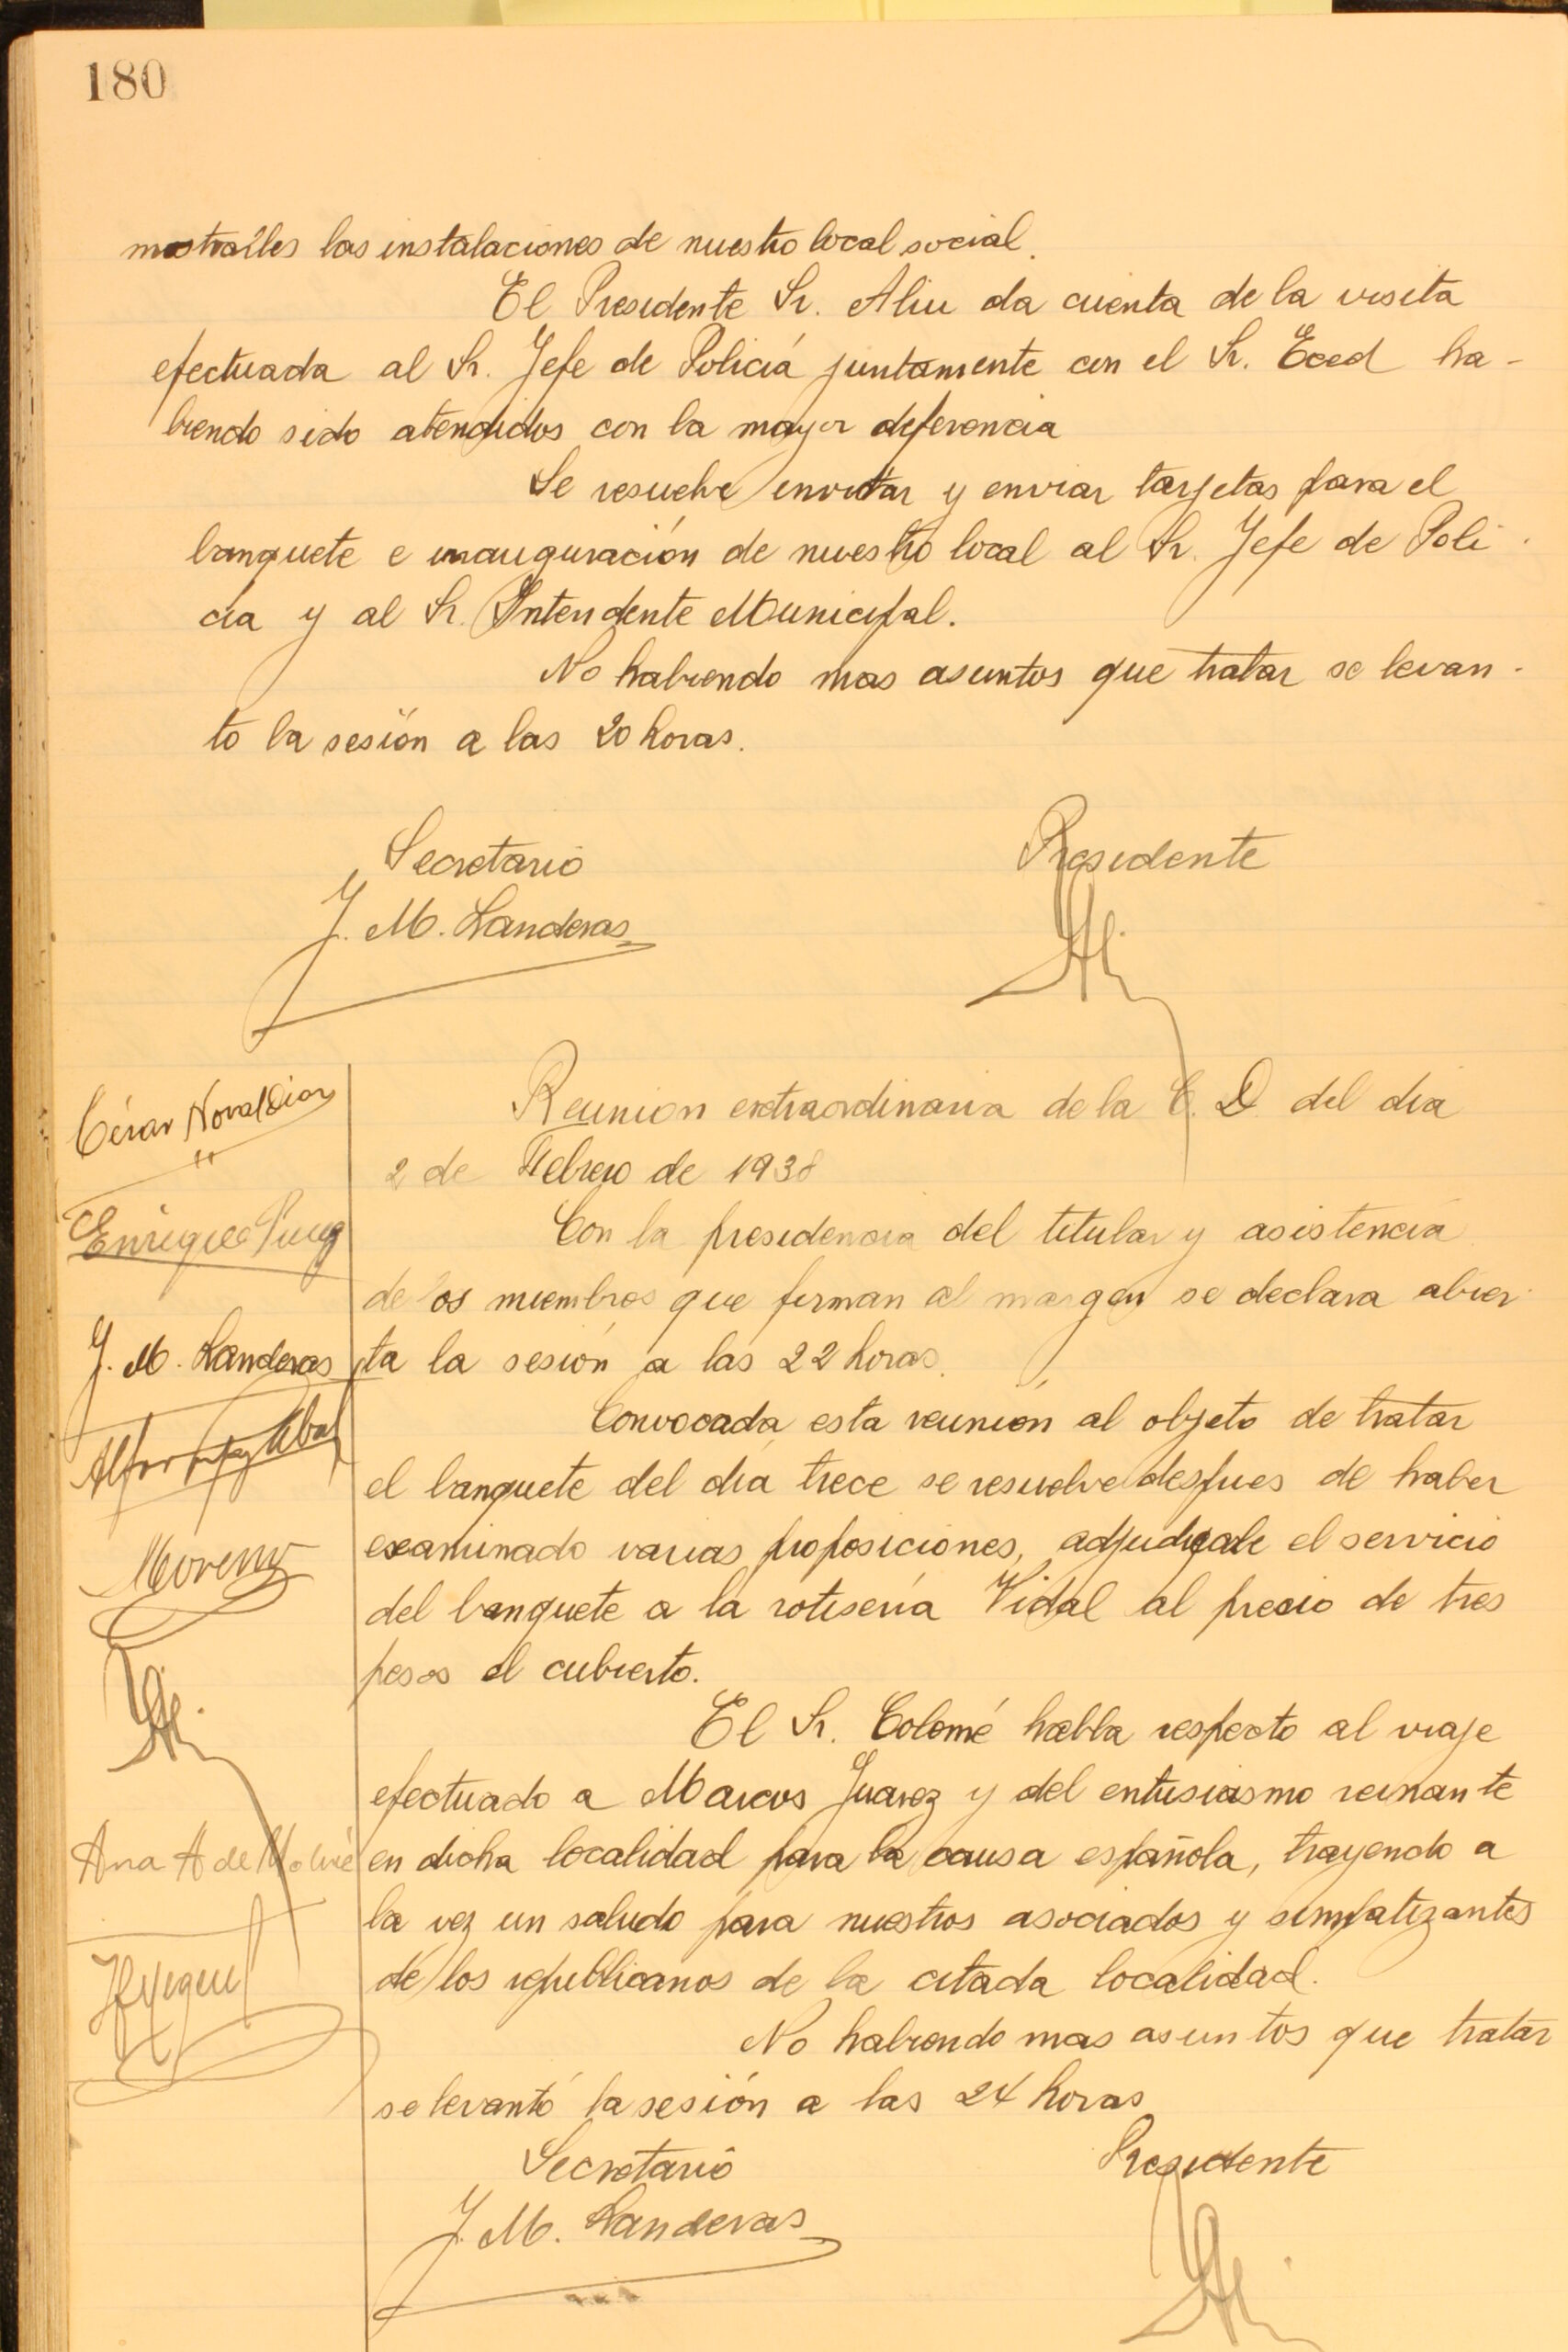 180
mostrarles las instalaciones de nuestro local social.
El Presidente Sr. Aliu da cuenta de la visita
efectuada al Sr. Jefe de Policiá juntamente con el Sr. Eced ha-
biendo sido atendidos con la mayor deferencia
Se resuelve invitar y enviar tarjetas para el
banquete e inauguración de nuestro local al Sr. Jefe de Poli-
cia y al Sr. Intendente Municipal.
No habiendo mas asuntos que tratar se levan-
to la sesión a las 20 horas.
Secretario
Presidente
J. M. Landeras
Reunion extraordinaria de la C. D. del dia
2 de Febrero de 1938
Con la presidencia del titular y asistencia
de los miembros que firman al margen se declara abier-
ta la sesión a las 22 horas.
Convocada esta reunión al objeto de tratar
el banquete del dia trece se resuelve despues de haber
examinado varias proposiciones, adjudicarle el servicio
del banquete a la rotiseria Vidal al precio de tres
pesos el cubierto.
El Sr. Colomé habla respecto al viaje
efectuado a Marcos Juarez y del entusiasmo reinante
en dicha localidad para la causa española, trayendo a
la vez un saludo para nuestros asociados y simpatizantes
de los republicanos de la citada localidad.
No habiendo mas asuntos que tratar
se levantó la sesión a las 24 horas
Secretario
Presidente
J. M. Landeras
César
Enrique Puig
J. M. Landeras
Moreno
Ana A de